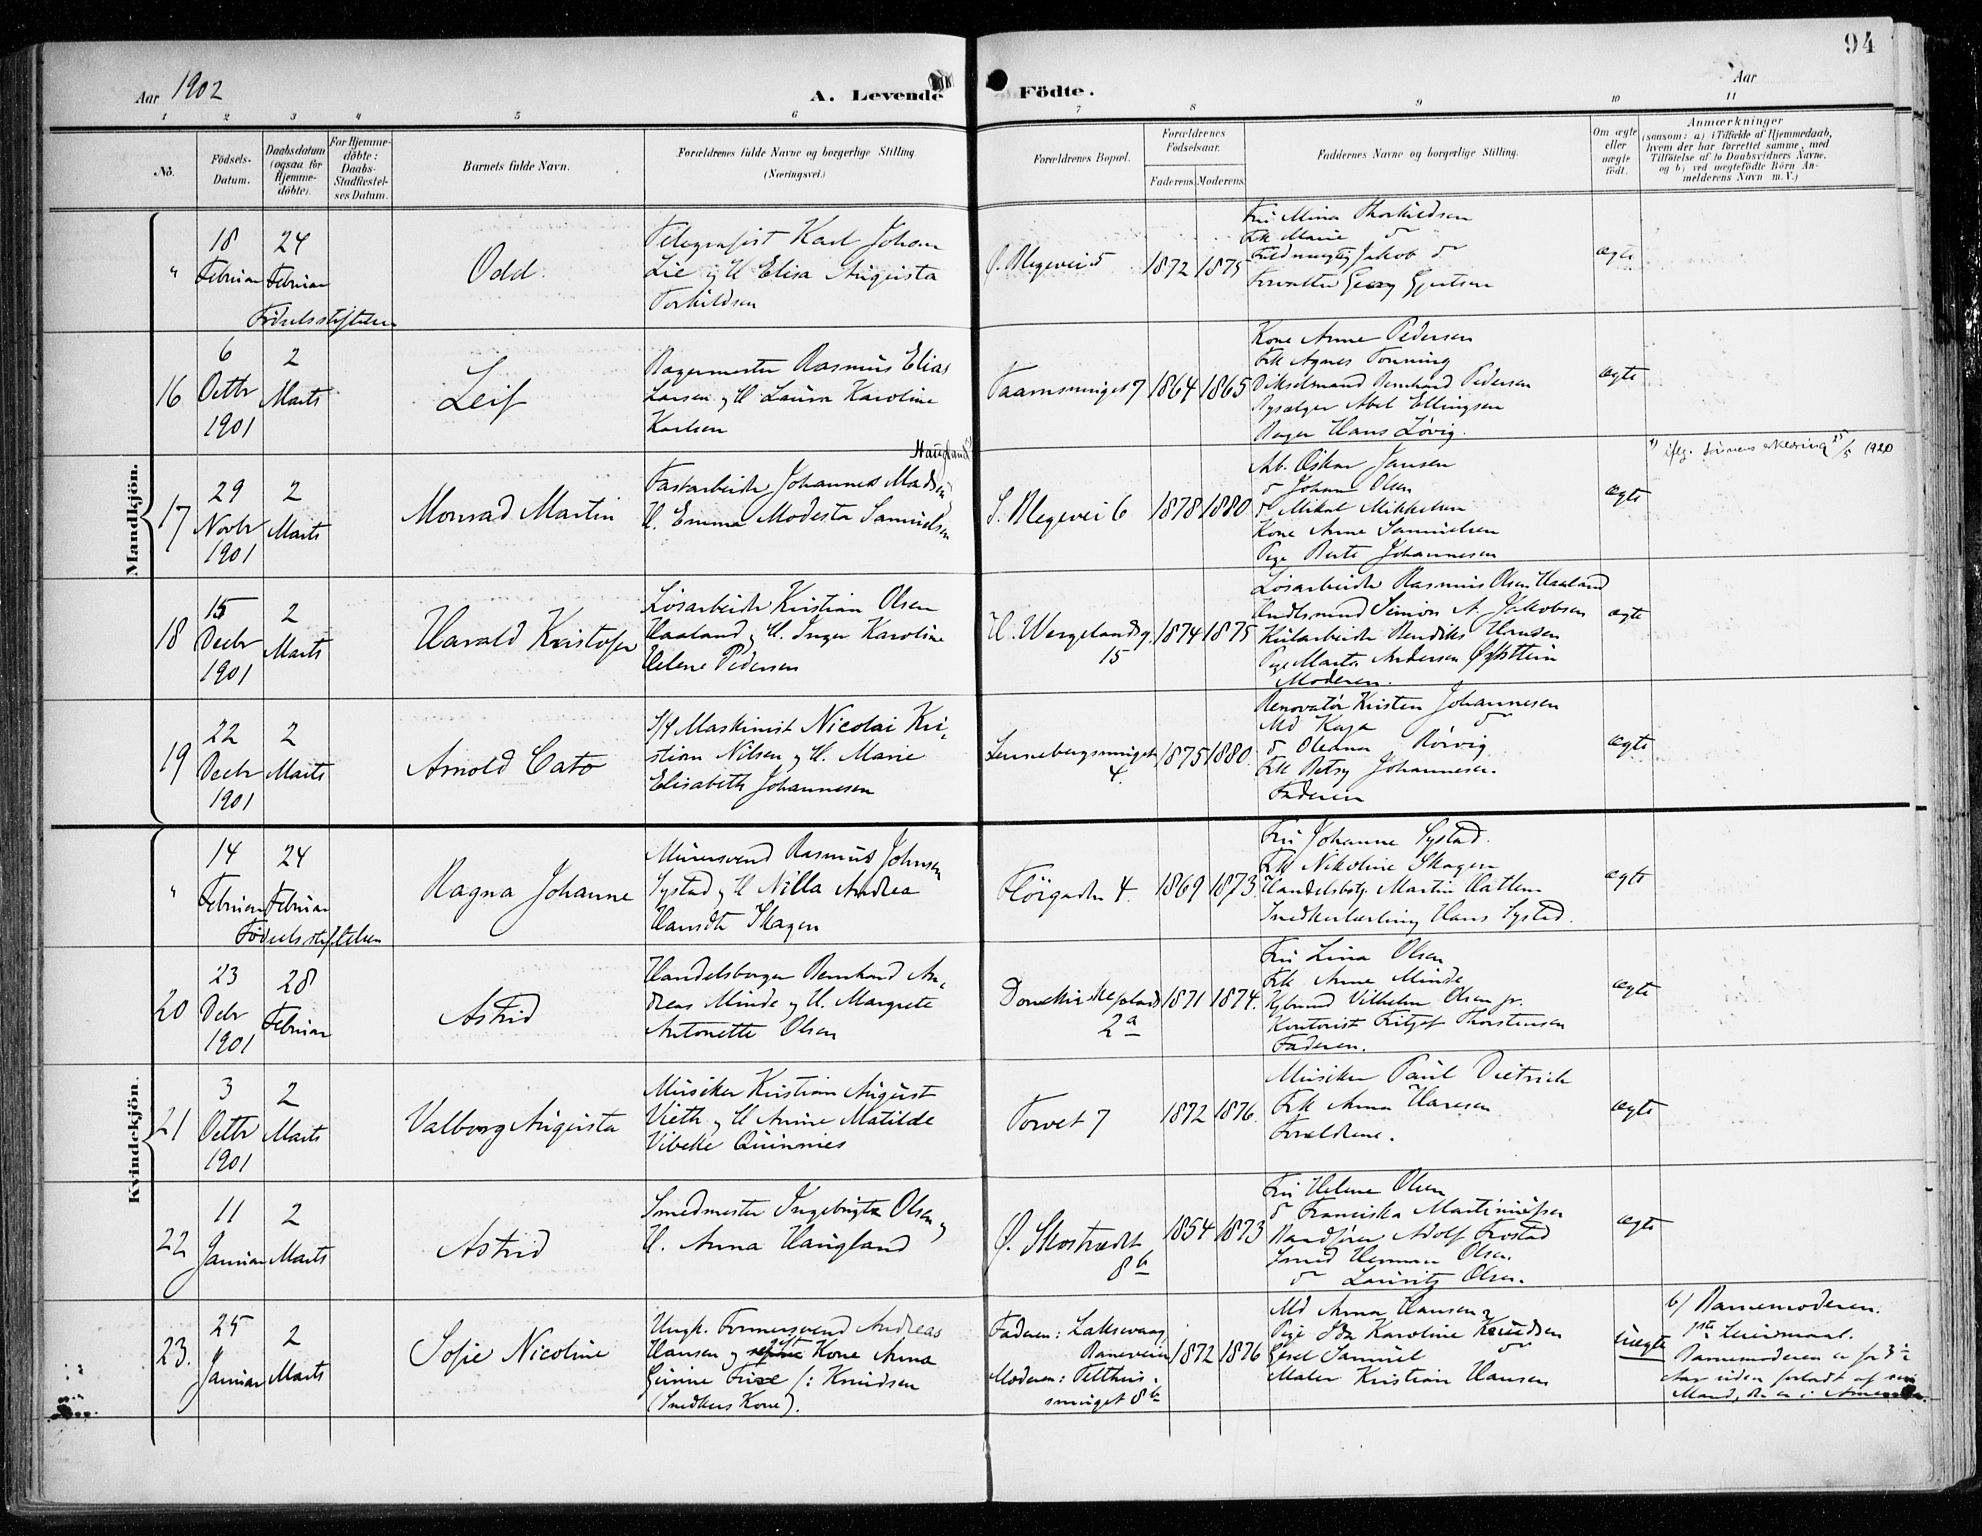 94
Aar 1902
A. Levende Födte.
Aar
1 2 3 4 5 6 7 8 9 10 11
No.
Födsels-
Datum.
Daabsdatum
(ogsaa for
Hjemme-
döbte).
For Hjemme-
döbte:
Daabs-
Stadfæstel-
ses Datum.
Barnets fulde Navn.
Forældrenes fulde Navne og borgerlige Stilling.
(Næringsvei.)
Forældrenes Bopæl.
Forældrenes
Födselsaar.
Faderens. Moderens.
Faddernes Navne og borgerlige Stilling.
Om ægte
eller
uægte
födt.
Anmærkninger
(saasom: a) i Tilfælde af Hjemmedaab,
hvem der har forrettet samme, med
Tilföielse af to Daabsvidners Navne.
og b) ved uægtefödte Börn An-
melderens Navn m. V.)
Mandkjön.
"
18
Februar
24
Februar
Fødselsstiftelsen
Odd
Telegrafist Karl Johan
Lie og H Elisa Augusta
Torkildsen
Ø. Blegevei 5
1872
1875
Fru Mina Thorkildsen
Frk Marie do
Fuldmægtig Jakob do
Forvalter Georg Gjertsen
ægte
16
6
Octbr
1901
2
Marts
Leif
Bagermester Rasmus Elias
Larsen og H Laura Karoline
Karlsen
Taarnsmuget 7
1864
1865
Kone Anne Pedersen
Frk Agnes Tonning
Dikselmand Bernhard Pedersen
Bysælger Abel Ellingsen
Bager Hans Løvig.
ægte
17
29
Novbr
1901
2
Marts
Monrad Martin
Haugland *)
Fastarbeider Johannes Madsen
H. Emma Modesta Samuelsen
S. Blegevei 6
1878
1880
Arb. Oskar Jansen
do Johan Olsen
do Mikal Mikkelsen
Kone Anne Samuelsen
Pige Berte Johannesen
ægte
*) iflg. dennes erklæring 25/5 1920
18
15
Decbr
1901
2
Marts
Harald Kristofer
Løsarbeider Kristian Olsen
Haaland og H. Inger Karoline
Helene Pedersen
H. Wergelandsg.
15
1874
1875
Løsarbeider Rasmus Olsen Haaland
Simon A. Jakobsen
Kularbeider Bendiks Hansen
Pige Marta Andersen
Moderen.
ægte
19
22
Decbr
1901
2
Marts
Arnold Cato
Maskinist Nicolai Kri-
stian Nilsen og H. Marie
Elisabeth Johannesen
4.
1875
1880
Renovatør Kristen Johannesen
Md Kaja do
do Oleana Rörvig
Frk Betsy Johannesen.
Faderen
ægte
Kvindekjön.
"
14
Februar
24
Februar
Fødselsstiftelsen
Ragna Johanne
Murersvend Rasmus Johnsen
Systad og H Nilla Andrea
Skagen
4.
1869
1873.
Fru Johanne Systad.
Frk Nikoline Skagen
Handelsbetj. Martin Hatlem
Snedkerlærling Hans Systad.
ægte
20
23
Decbr
1901
28
Februar
Astrid
Handelsborger Bernhard An-
dreas Minde og H. Margrete
Antonette Olsen
Domkirkeplads
2 a
1871
1874.
Fru Lina Olsen
Frk Anne Minde
Vilhelm Olsen jr.
Kontorist Fritjof Thorstensen
Faderen.
ægte
21
3
Octbr
1901
2
Marts
Valborg Augusta
Musiker Kristian August
Vieth og H Anine Matilde
Vibeke Quinnies
Torvet 7
1872
1876.
Musiker Paul Dietrich
Frk Anna Haresen
Forældrene.
ægte
22
11
Januar
2
Marts
Astrid
Smedmester Ingebrigt Olsen og
H. Anna Haugland
Ø. Skostrædet
8 b
1854
1873
Fru Helene Olsen
do Franciska Martiniussen
Adolf Frostad
Smed Herman Olsen.
do Lauritz Olsen.
ægte
23.
25
Januar
2
Marts
Sofie Nicoline
Ungk. Formersvend Andreas
Hansen og gift Kone Anna
Frixe /: Knudsen
(Snedkers Kone).
Faderen: Laksevaag,
Baneveien
Moderen:
smuget 8 b
1872
1876
Md Anna Hansen
Pige Ida Karoline Knudsen
Gesel Samuel do
Maler Kristian Hansen
uægte
b/ Barnemoderen.
1ste Leiermaal.
Barnemoderen er for 3
Aar siden forladt af sin
Mand, der er i Amerika.